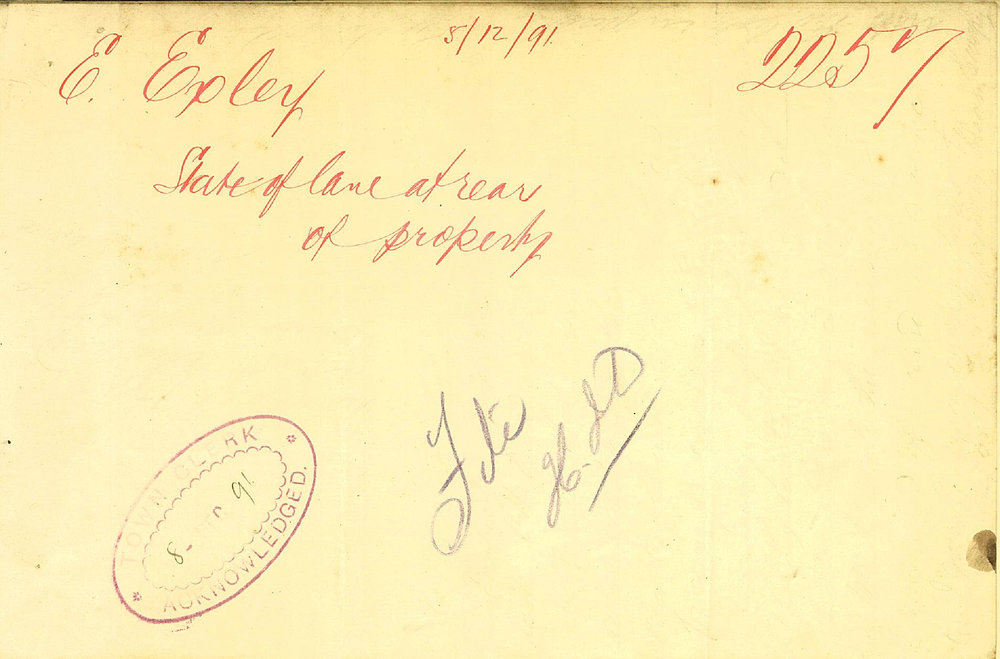 5/12/91
E. Exley
2257
State of lane at rear
of property
File
TOWN CLERK
8- 91
ACKNOWLEDGED.